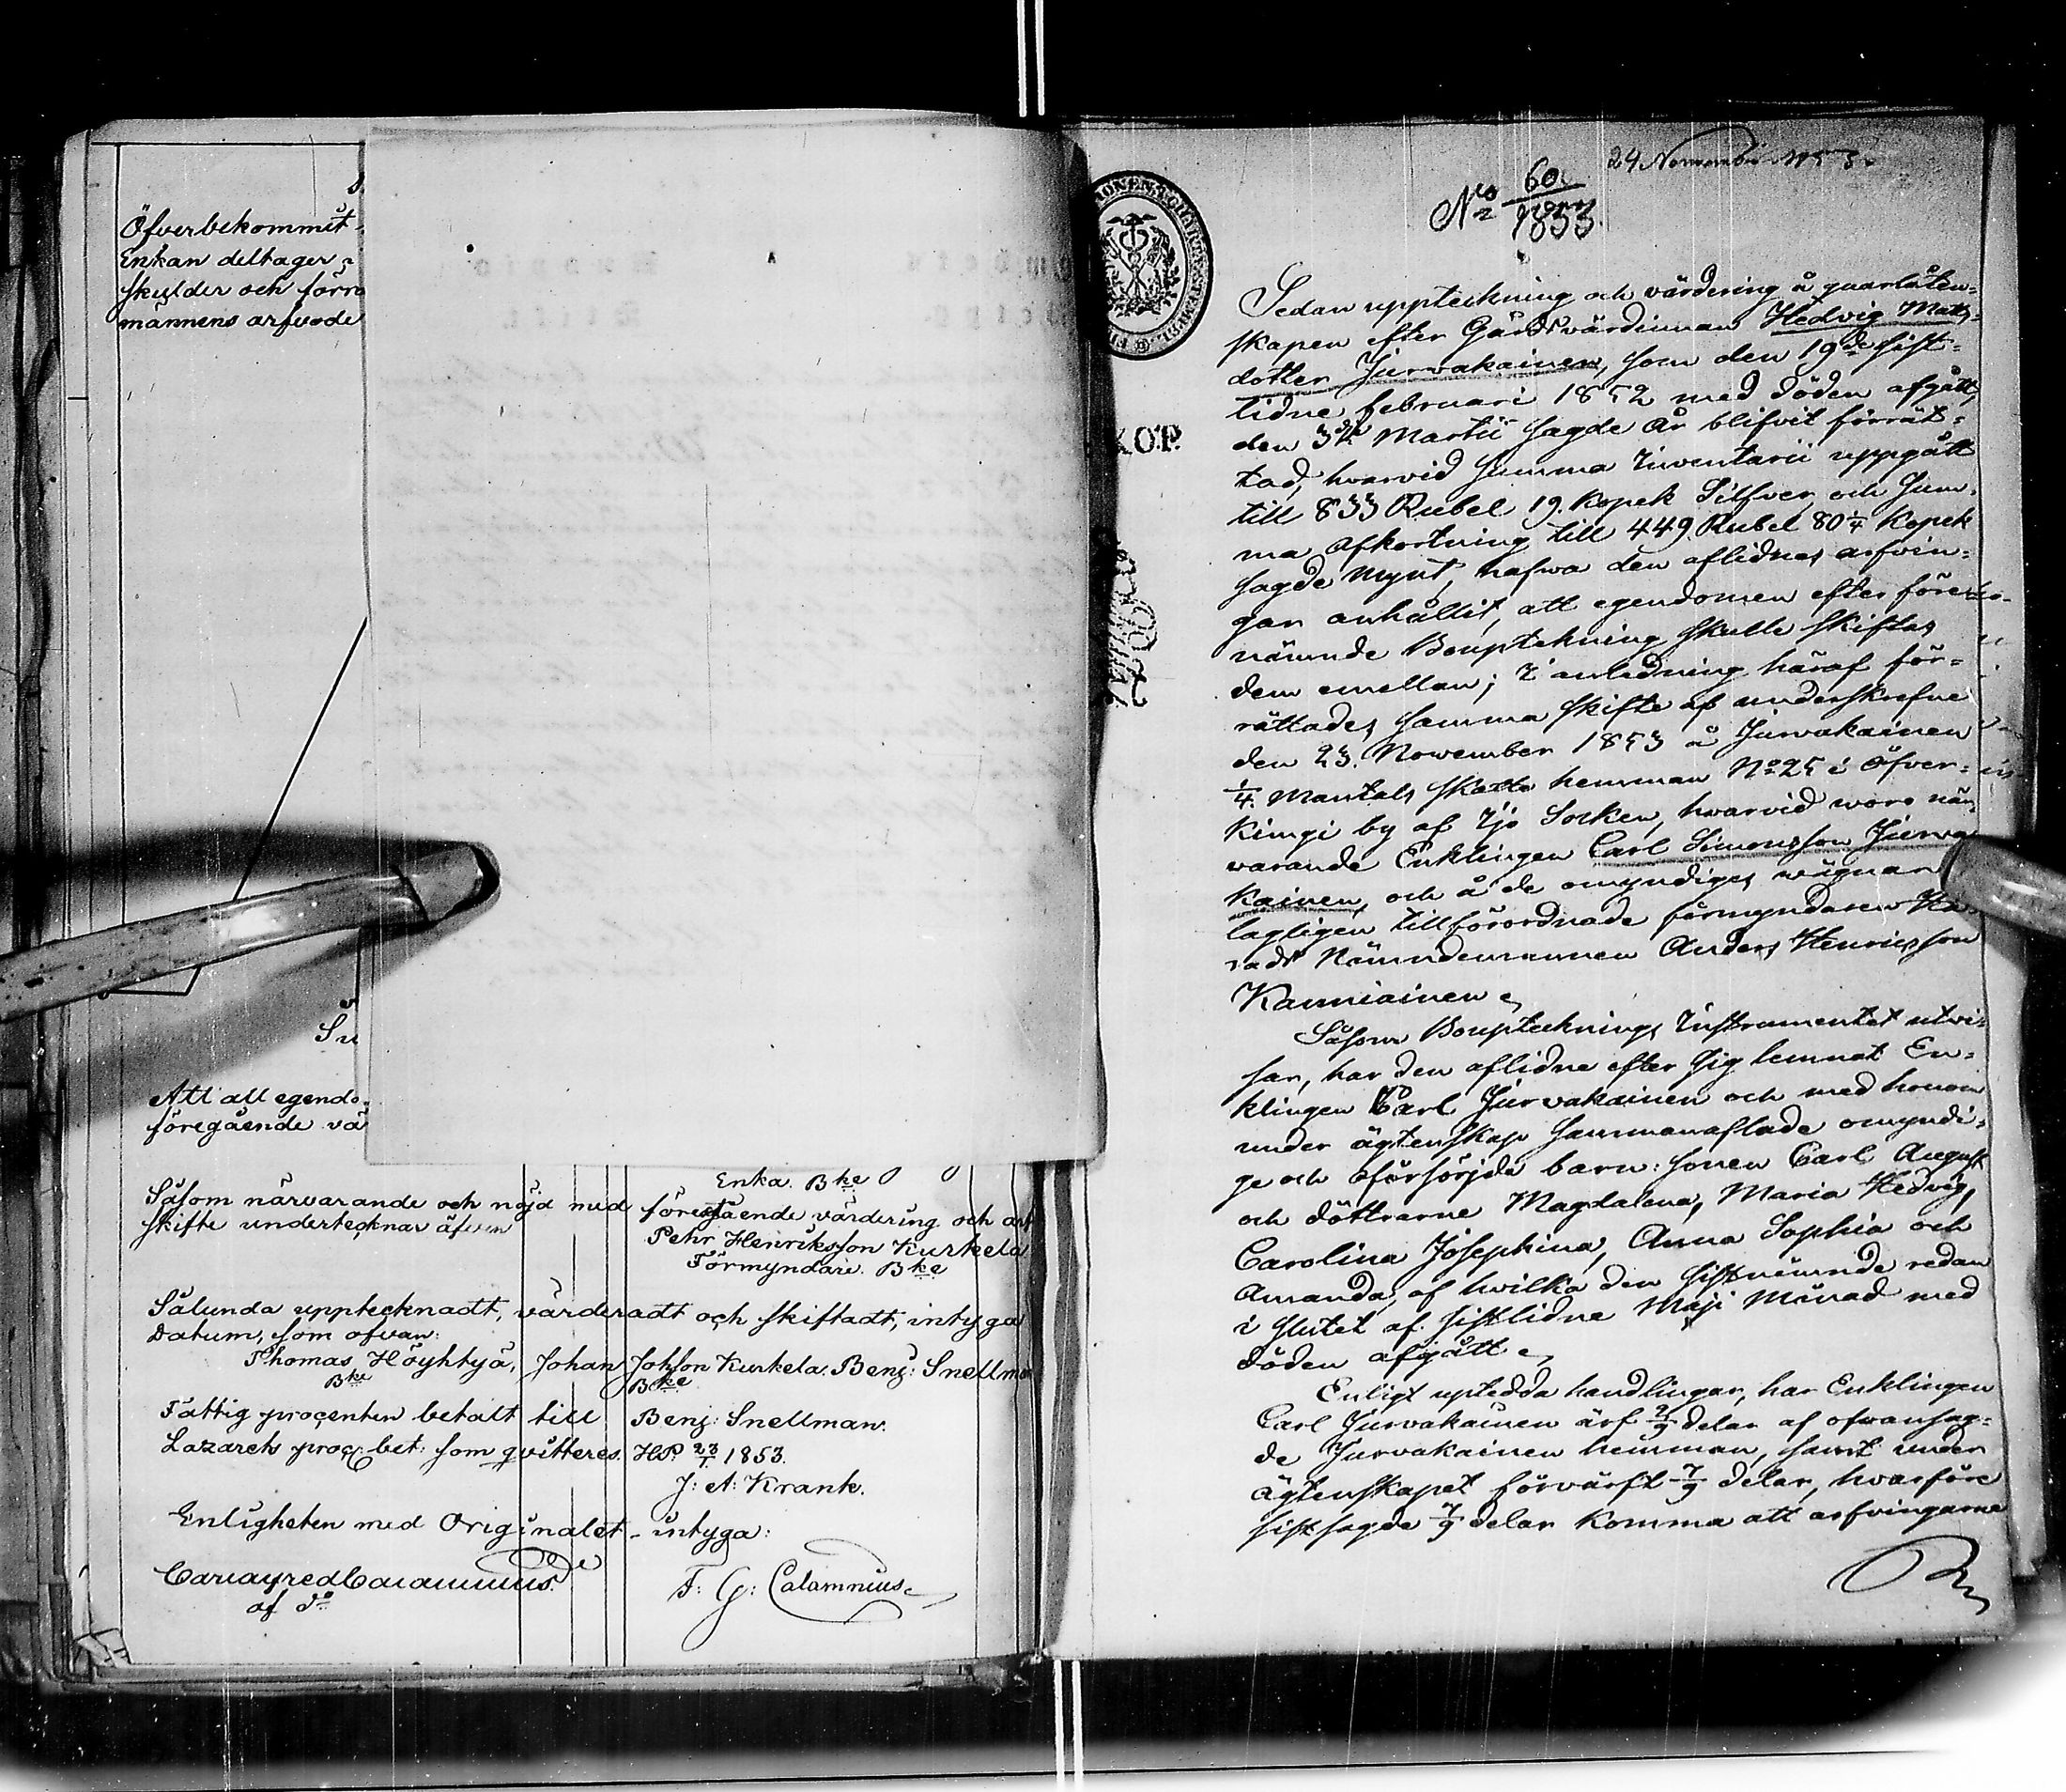 Öfverbekommit
Enkan deltager
skulder och förro
männens arfvode
Su
Att all egendo
föregående vä
Enka. Bke
Såsom närvarande och nöjd med föregående värdering och arf
skifte undertecknar äfven
Pehr Henriksson Kurkela
Förmyndare. Bke
Sålunda upptecknadt, värderadt och skiftadt, intyga
Datum, som ofvan:
Thomas Höyhtyä, Johan Johsson Kurkela. Benj: Snellman
Bke Bke
Fattig procenten betalt till Benj: Snellman.
Lazarets proc: bet: som qvitteres. HP. 23/1 1853.
J: A: Krank.
Enligheten med Originalet intyga:
F: G: Calamnius
af
24 November 1853
No 60
1853.
KOP.
Sedan uppteckning och värdering å qvarlåten-
skapen efter Gårdsvärdinnan Hedvig Matts-
dotter Jurvakainen, som den 19de sist-
lidne februari 1852 med döden afgått,
den 3dje Martii sagde år blifvit förrät-
tad, hvarvid Summa Inventarii uppgått
till 833 Rubel 19. Kopek Silfver, och Sum-
ma Afkortning till 449 Rubel 80 1/4 Kopek
sagde mynt, hafva den aflidnes arfvin-
gar anhållit, att egendomen efter före-
nämnde Bouptekning skulle skiftas
dem emellan; I anledning häraf för-
rättades samma skifte af underskrefne
den 23. November 1853 å Jurvakainen
1/4. Mantals skatte hemman No 25 i Öfver-
Kimgi by af Ijo Socken, hvarvid woro när-
warande Enklingen Carl Simonsson Jurva-
kainen, och å de omyndiges wägnar
lagligen tillförordnade förmyndaren Hä-
rads Nämndemannen Anders Henricsson
Kauniainen
Såsom Boupteknings Instrumentet utvi-
sar, har den aflidne efter sig lemnat En-
klingen Carl Jurvakainen och med honom
under ägtenskap sammanaflade omyndi-
ge och oförsörjda barn: sonen Carl August
och döttrarne Magdalena, Maria Hedvig,
Carolina Josephina, Anna Sophia och
Amanda, af hvilka den sistnämnde redan
i slutet af sistlidne Maji Månad med
döden afgått
Enligt uptedda handlingar, har Enklingen
Carl Jurvakainen ärf 2/9 delar af ofwansag-
de Jurvakainen hemman, samt under
ägtenskapet förvärft 7/9 delar, hvarföre
sistsagde 7/9 delar komma att arfvingarne